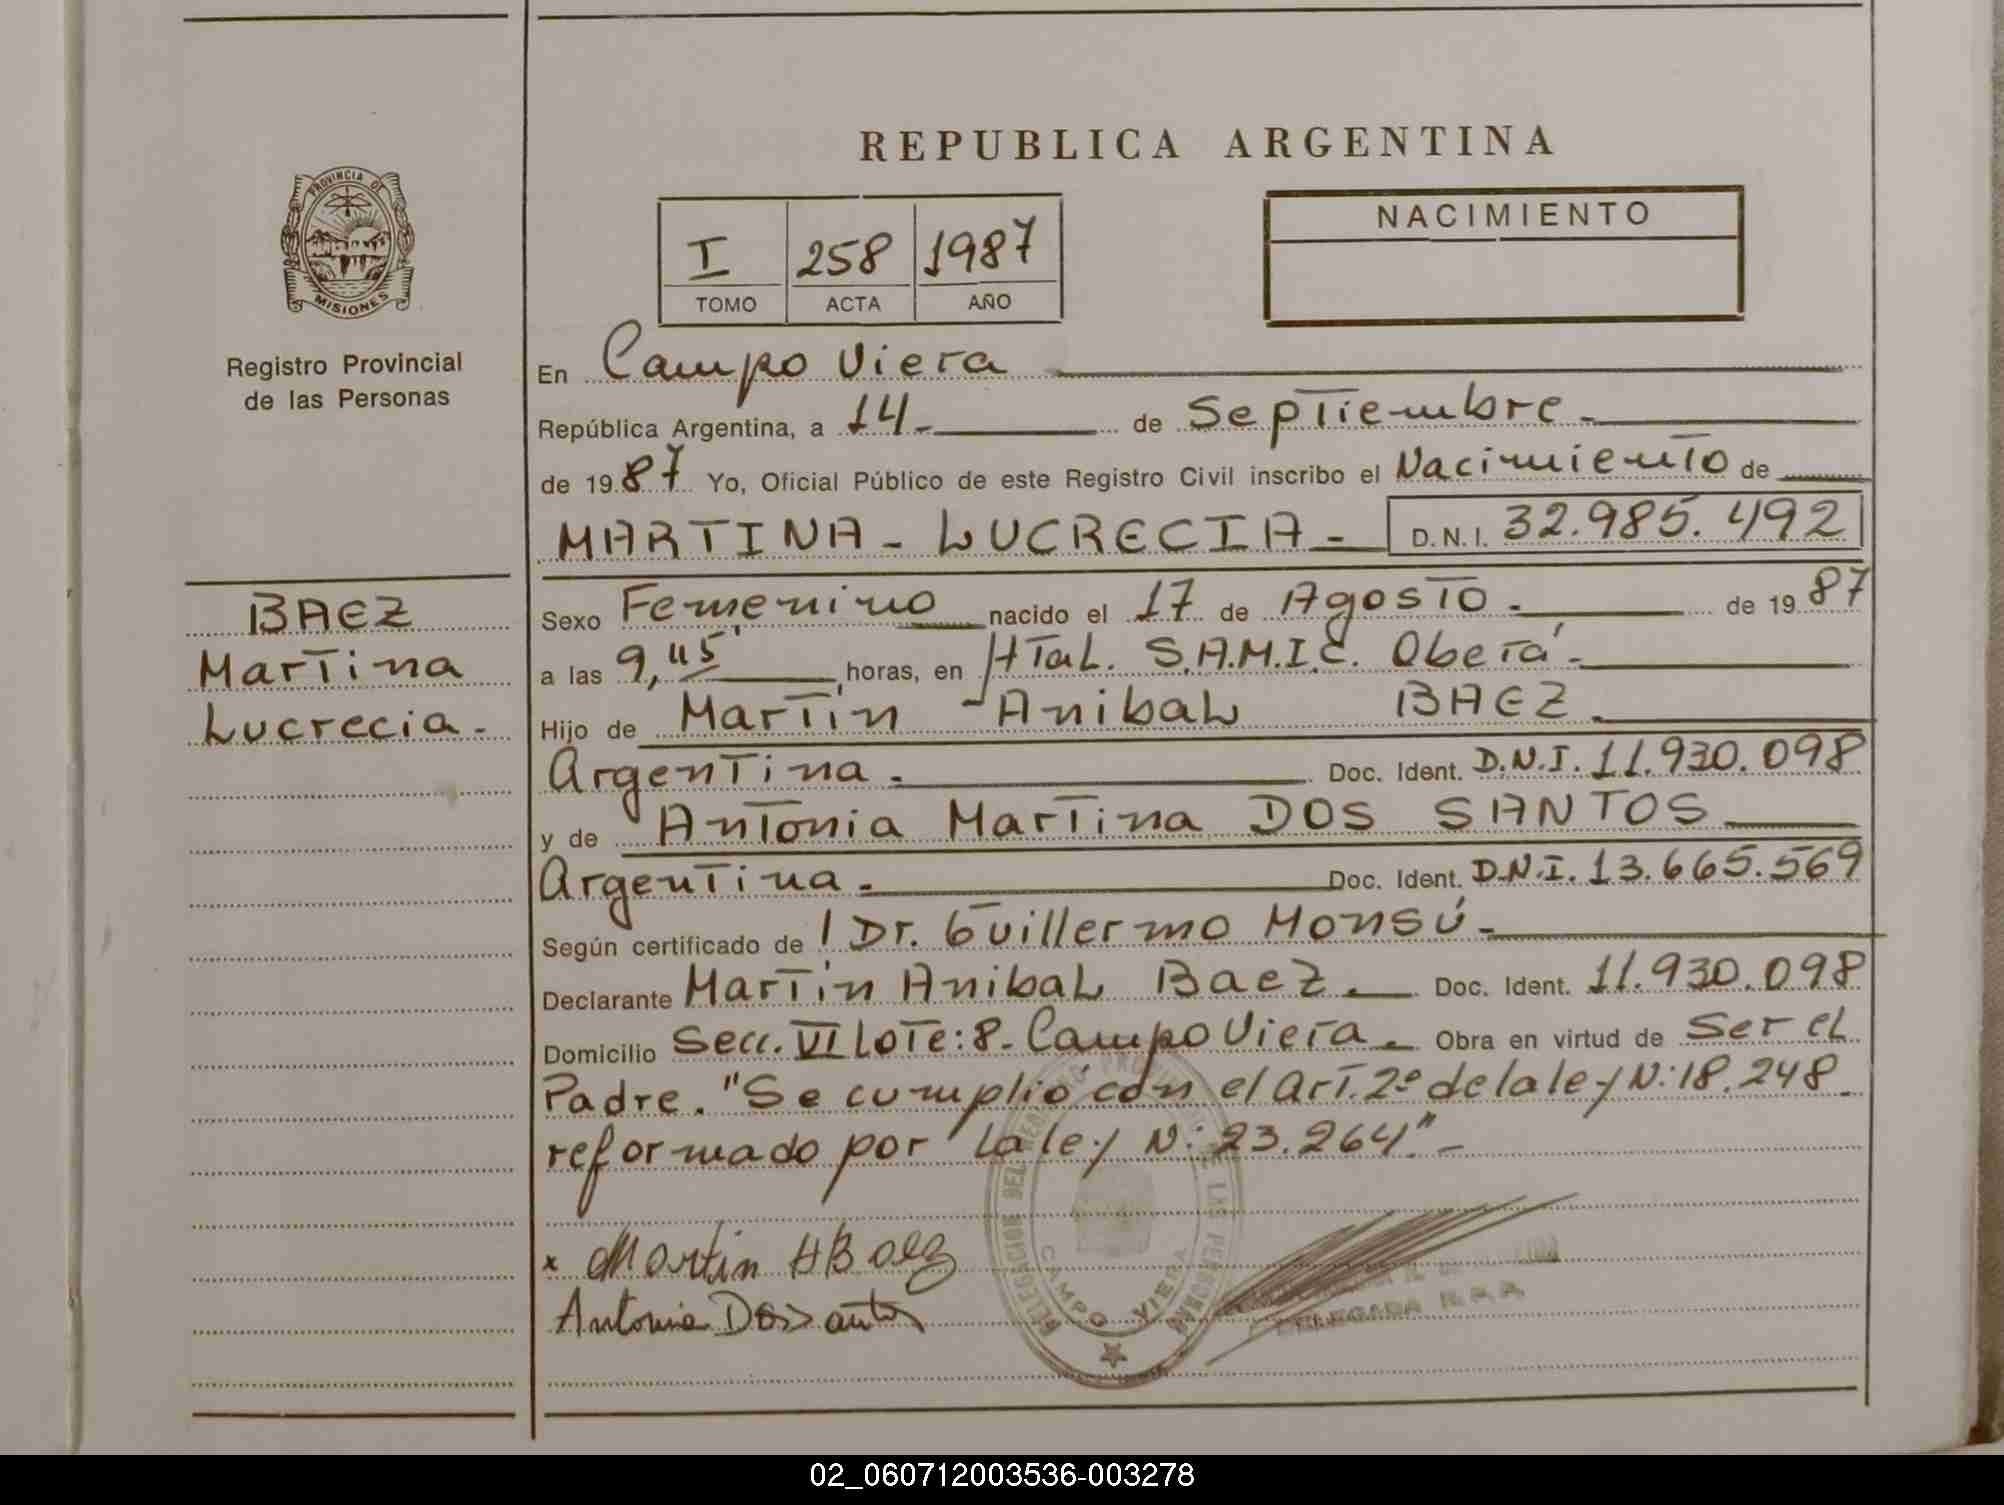 REPUBLICA ARGENTINA
PROVINCIA DE
MISIONES
Registro Provincial
de las Personas
I 258 1987
TOMO ACTA AÑO
NACIMIENTO
En Campo Viera
República Argentina, a 14- de Septiembre-
de 1987 Yo, Oficial Público de este Registro Civil inscribo el Nacimiento de
MARTINA - LUCRECIA - D.N.I. 32.985.492
BAEZ
Martina
Lucrecia-
Sexo Femenino nacido el 17 de Agosto- de 1987
a las 9,45 horas, en Htal. S.A.M.I.C. Oberá-
Hijo de Martín -Anibal BAEZ.
Argentina. Doc. Ident. D.N.I. 11.930.098
y de Antonia Martina DOS SANTOS
Argentina. Doc. Ident. D.N.I. 13.665.569
Según certificado de Dr. Guillermo Monsú-
Declarante Martín Anibal Baez. Doc. Ident. 11.930.098
Domicilio Secc. VI Lote: 8- Campo Viera. Obra en virtud de Ser el
Padre. "Se cumplió con el Art. 2º de la ley N: 18.248
reformado por la ley N: 23.264".-
x Martin A Baez
Antonia Dos Santos
CAMPO VIERA
DELEGADA R.P.P.
02_060712003536-003278